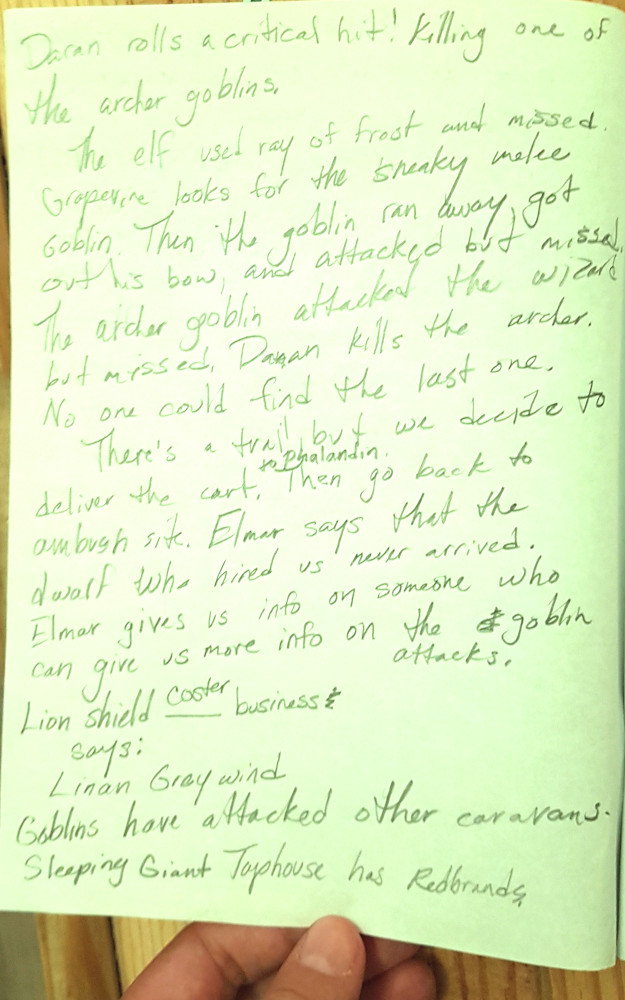 Daran rolls a critical hit! Killing one of
the archer goblins.
The elf used ray of frost and missed.
Grapevine looks for the sneaky melee
goblin. Then the goblin ran away, got
out his bow, and attacked but missed.
The archer goblin attacked the wizard
but missed. Daran kills the archer.
No one could find the last one.
There's a trail, but we decide to
to Phalandin.
deliver the cart. Then go back to
ambush site. Elmar says that the
dwarf who hired us never arrived.
Elmar gives us info on someone who
can give us more info on the goblin
attacks.
Lion shield coster business
says:
Linan Graywind
Goblins have attacked other caravans.
Sleeping Giant Taphouse has Redbrands.